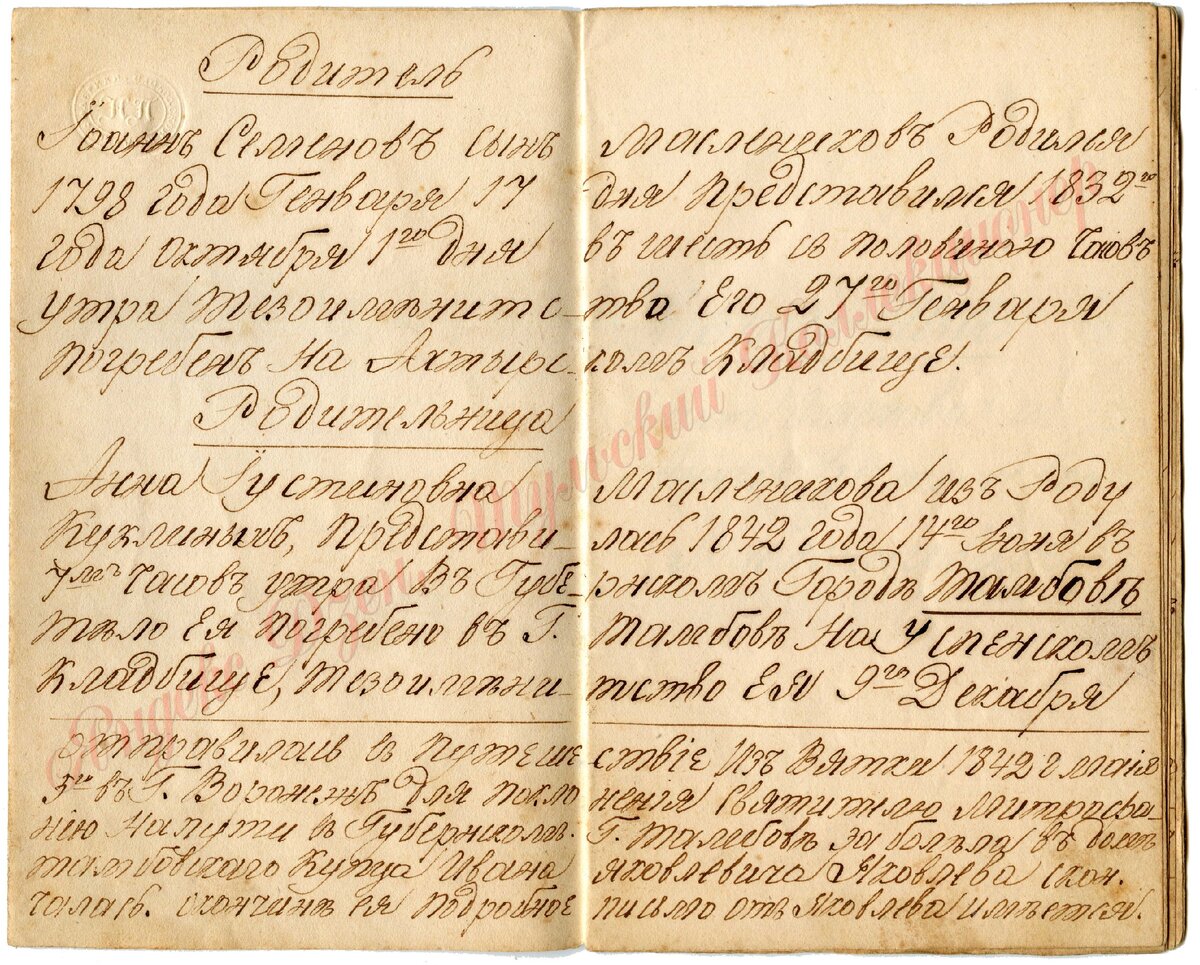 Родитель
Іоаннъ Семеновъ сынъ Маслениковъ Родился
1798 года Генваря 17 дня Представился 1832го
года Октября 1го дня въ шесть съ половиною часовъ
утра Тезоимѣнитс-тва Его 27го Генваря
погребенъ на Ахтырс-комъ Кладбище.
Родительница
Анна Іустиновна Масленикова изъ Роду
Куклиныхъ, Представи-лась 1842 года 14го Июня въ
7мъ часовъ утра Въ Губе-рнскомъ Городѣ Тамбовѣ
Тѣло Ея погребено въ Г. Тамбовѣ На Успенскомъ
Кладбище, Тезоимѣни-тство Ея 9го Декабря
отправилась в путеше ствіе Изъ Вятки 1842 г маія
въ Г. Воронежъ для покло ненія Святителю Митрофа-
нію На пути в Губернскомъ. Г. Тамбовѣ заболѣла въ домѣ
тамбовскаго Купца Ивана Яковлевича Яковлева скон.
чалась. окончинѣ ея подробное письмо отъ Яковлева имѣется.
Яндекс Дзен, Тульский Коллекционер